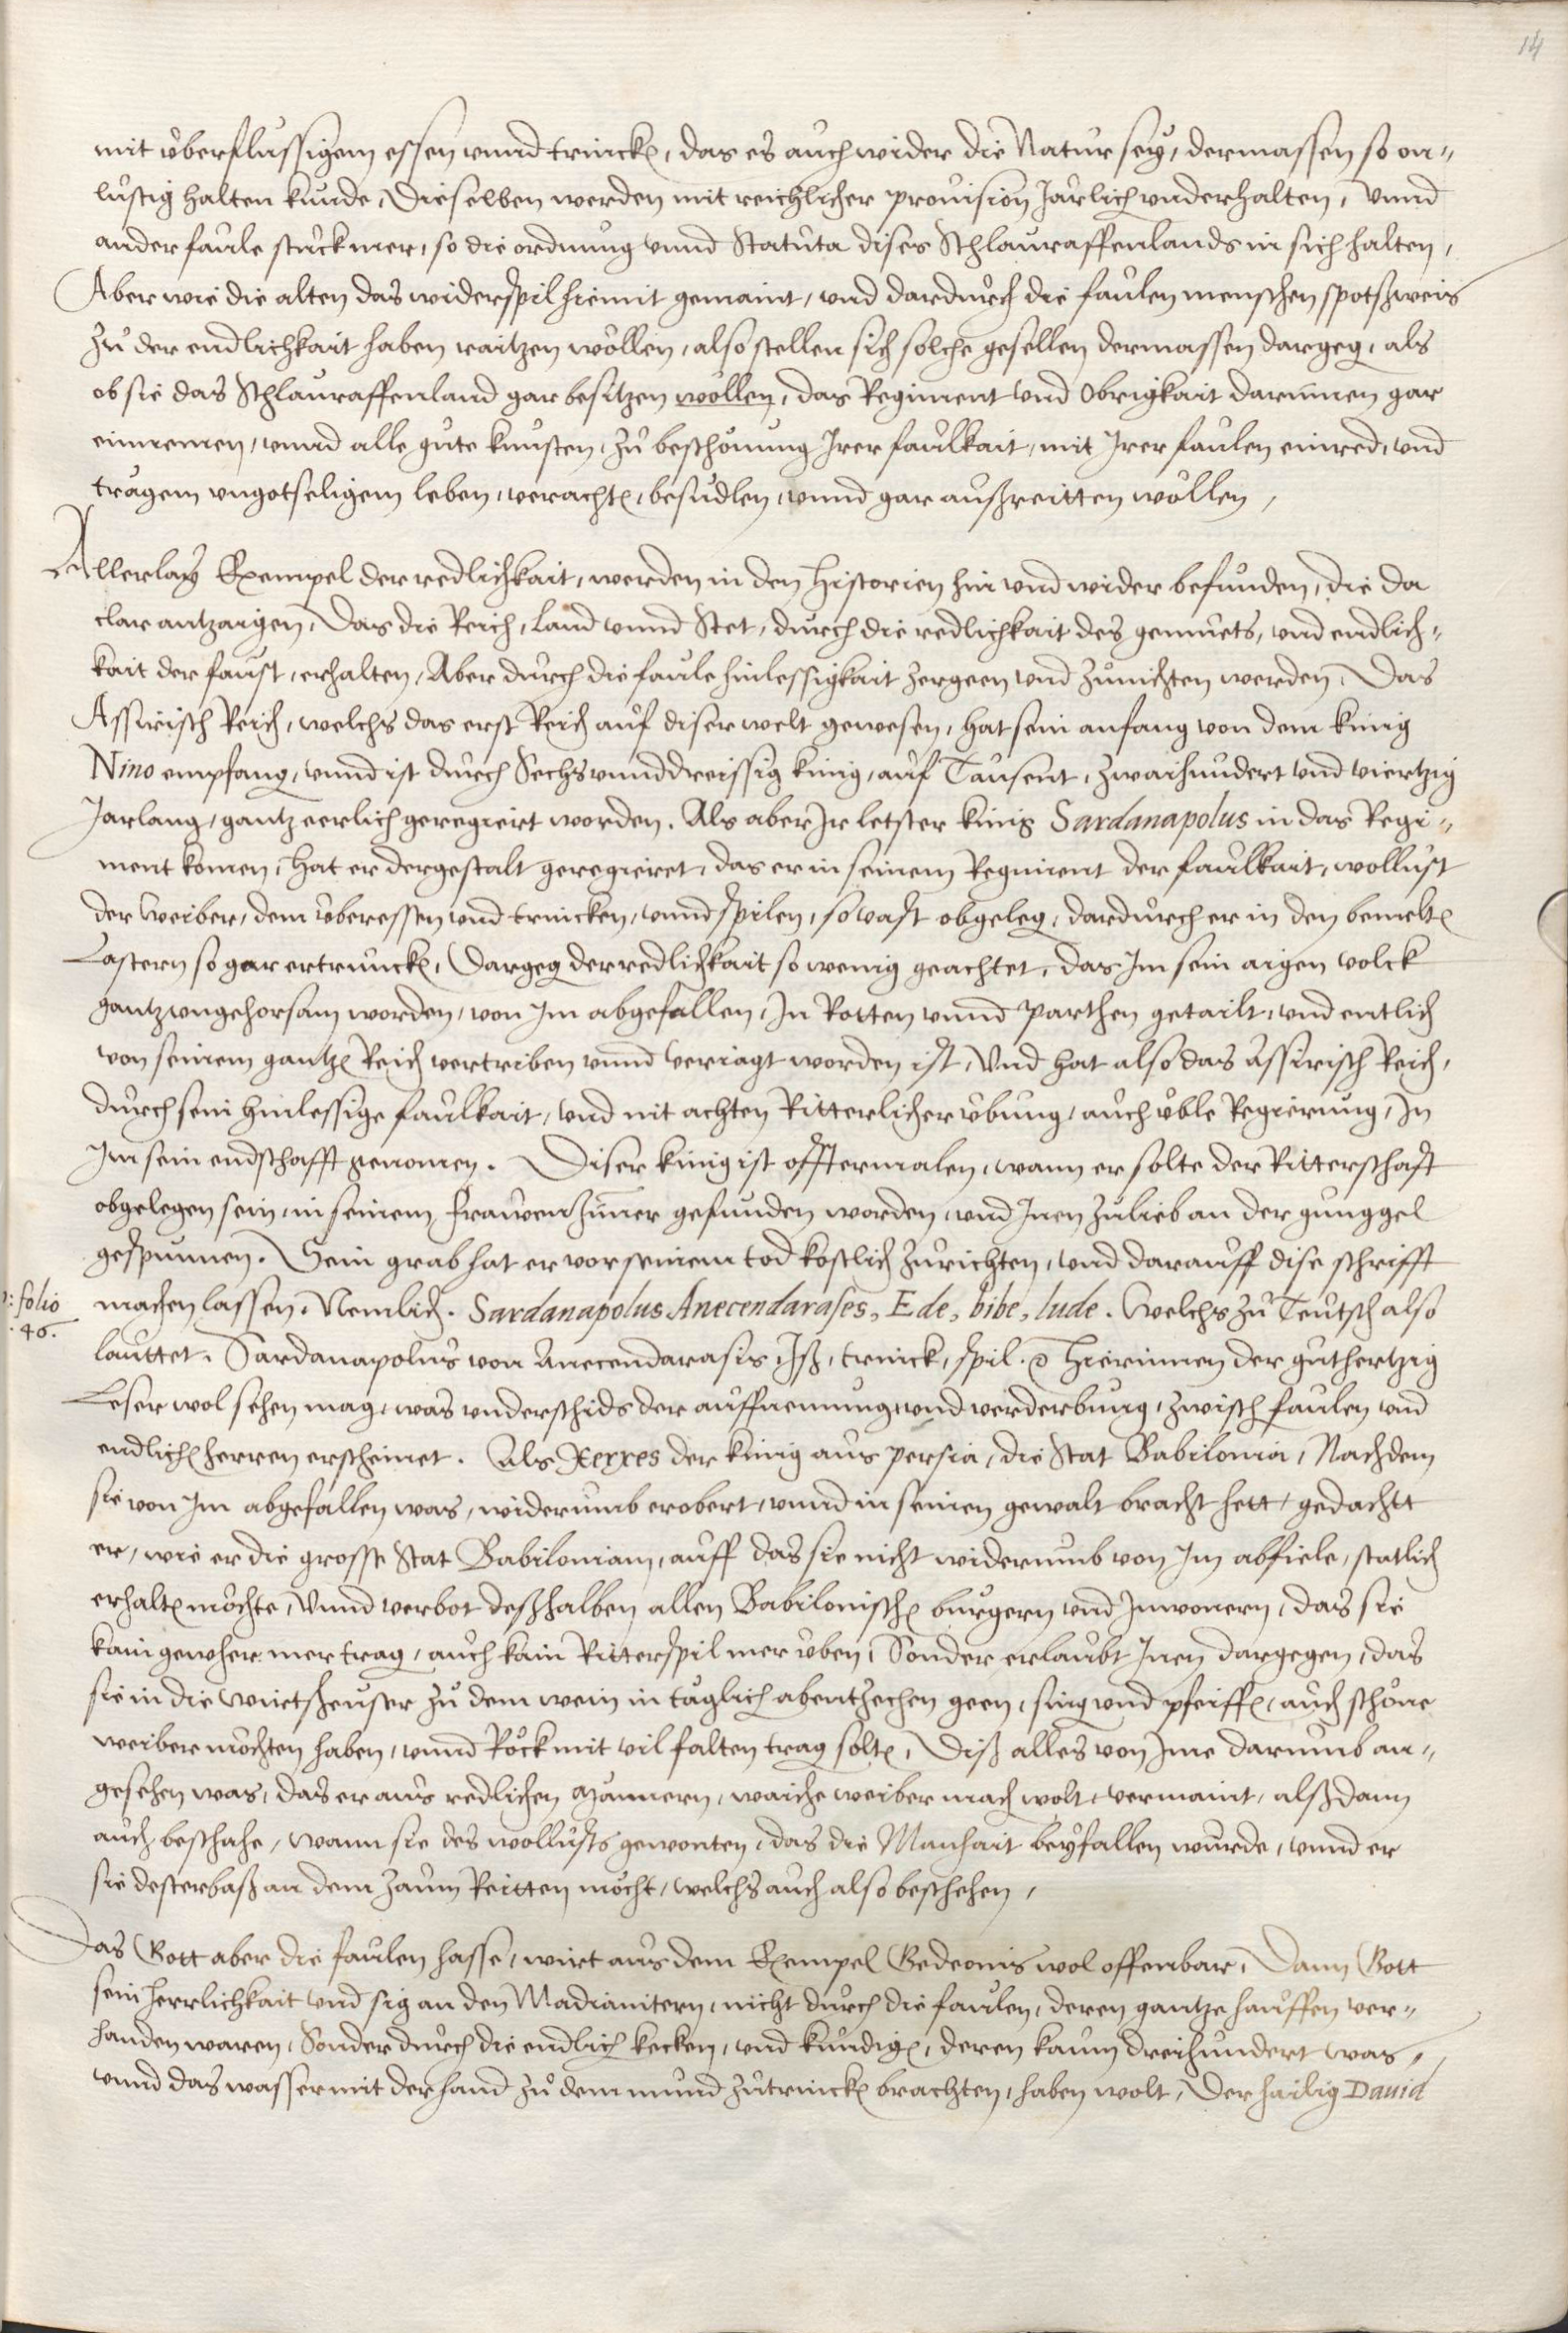 14
mit v̈berflüssigem essen vnnd trincken, das es auch wider die Natur seÿ, dermassen so on„
lustig halten kunde, Dieselben werden mit reichlicher prouision Järlich vnderhalten, Vnnd
ander faule stuck mer, so die ordnung vnnd Statuta dises Schlauraffenlands in sich halten,
Aber wie die alten das widerspil hiemit gemaint, vnd dardurch die faulen menschen spotsweis
zu der endlichkait haben raitzen wöllen, also stellen sich solche gesellen dermassen dargegen, als
ob sie das Schlauraffenland gar besitzen wöllen, das Regiment vnd Obrigkait darinnen gar
einnemen, vnnd alle gute kunsten, zu beschönung Jrer faulkait, mit Jrer faulen einred, vnd
trägem vngotseligem leben, verachten, besudlen, vnnd gar außreitten wöllen,
Allerlaÿ Exempel der redlichkait, werden in den Historien hin vnd wider befunden, die da
clar antzaigen, Das die Reich, Land vnnd Stet, durch die redlichkait des gemuets, vnd endlich„
kait der faust, erhalten, Aber durch die faule hinlessigkait zergeen vnd zunichten werden, Das
Assirisch Reich, welchs das erst Reich auf diser welt gewesen, hat sein anfang von dem kunig
Nino empfangen, vnnd ist durch Sechsvnnddreissig kunig, auf Tausent, zwaihundert vnd viertzig
Jarlang, gantz eerlich geregiert worden. Als aber Jr letster kunig Sardanapolus in das Regi„
ment komen, hat er dergestalt geregieret, das er in seinem Regiment der faulkait, wollust
der Weiber, dem v̈beressen vnd trincken, vnnd spilen, so vast obgelegen, dardurch er in den bemelten
Lastern so gar ertruncken, Dargegen der redlichkait so wenig geachtet, das Jm sein aigen volck
gantz vngehorsam worden, von Jm abgefallen, Jn Rotten vnnd Parthen getailt, vnd entlich
von seinem gantzen Reich vertriben vnnd veriagt worden ist, Vnd hat also das Assirisch Reich,
durch sein hinlessige faulkait, vnd nit achten Ritterlicher v̈bung, auch v̈ble Regierung, Jn
Jm sein endschafft genomen. Diser kunig ist offtermalen, wann er solte der Ritterschaft
obgelegen sein, in seinem frawenzimer gefunden worden, vnd Jnen zulieb an der gunggel
gespunnen. Sein grab hat er vor seinem tod kostlich zurichten, vnd darauff dise schrifft
: folio
46.
machen lassen, Nemlich. Sardanapolus Anecendarases, Ede, bibe, lude. Welchs zu Teutsch also
lauttet. Sardanapolus von Anecendarasis, Jß, trinck, spil. Hierinnen der guthertzig
Leser wol sehen mag, was vnderschids der auffnemung vnd verderbung, zwischen faulen vnd
endlichen herren erscheinet. Als Xerxes der kunig aus Persia, die Stat Babilonia, Nachdem
sie von Jm abgefallen was, widerumb erobert, vnnd in seinen gewalt bracht hett, gedachtt
er, wie er die grosse Stat Babiloniam, auff das sie nicht widerumb von Jm abfiele, statlich
erhalten möchte, Vnnd verbot deßhalben allen Babilonischen burgern vnd Jnwonern, das sie
kain gewher mer tragen, auch kain Ritterspil mer v̈ben, Sonder erlaubt Jnen dargegen, das
sie in die wirtsheuser zu dem wein in täglich abentzechen geen, singen vnd pfeiffen, auch schöne
weiber möchten haben, vnnd Röck mit vil falten tragen solten, Diß alles von Jme darumb an„
gesehen was, das er aus redlichen Männern, waiche weiber machen wolt, vermaint, alßdann
auch beschahe, wann sie des wollusts gewonten, das die Manhait beÿfallen wurde, vnnd er
sie desterbaß an dem zaum Reitten möcht, welchs auch also beschehen,
Das Gott aber die faulen hasse, wirt aus dem Exempel Gedeonis wol offenbar, Dann Gott
sein herrlichkait vnd sig an den Madianitern, nicht durch die faulen, deren gantze hauffen ver„
handen waren, Sonder durch die endlich kecken, vnd kundigen, deren kaum dreihundert was,
vnnd das wasser mit der hand zu dem mund zutrincken brachten, haben wolt, Der hailig Dauid